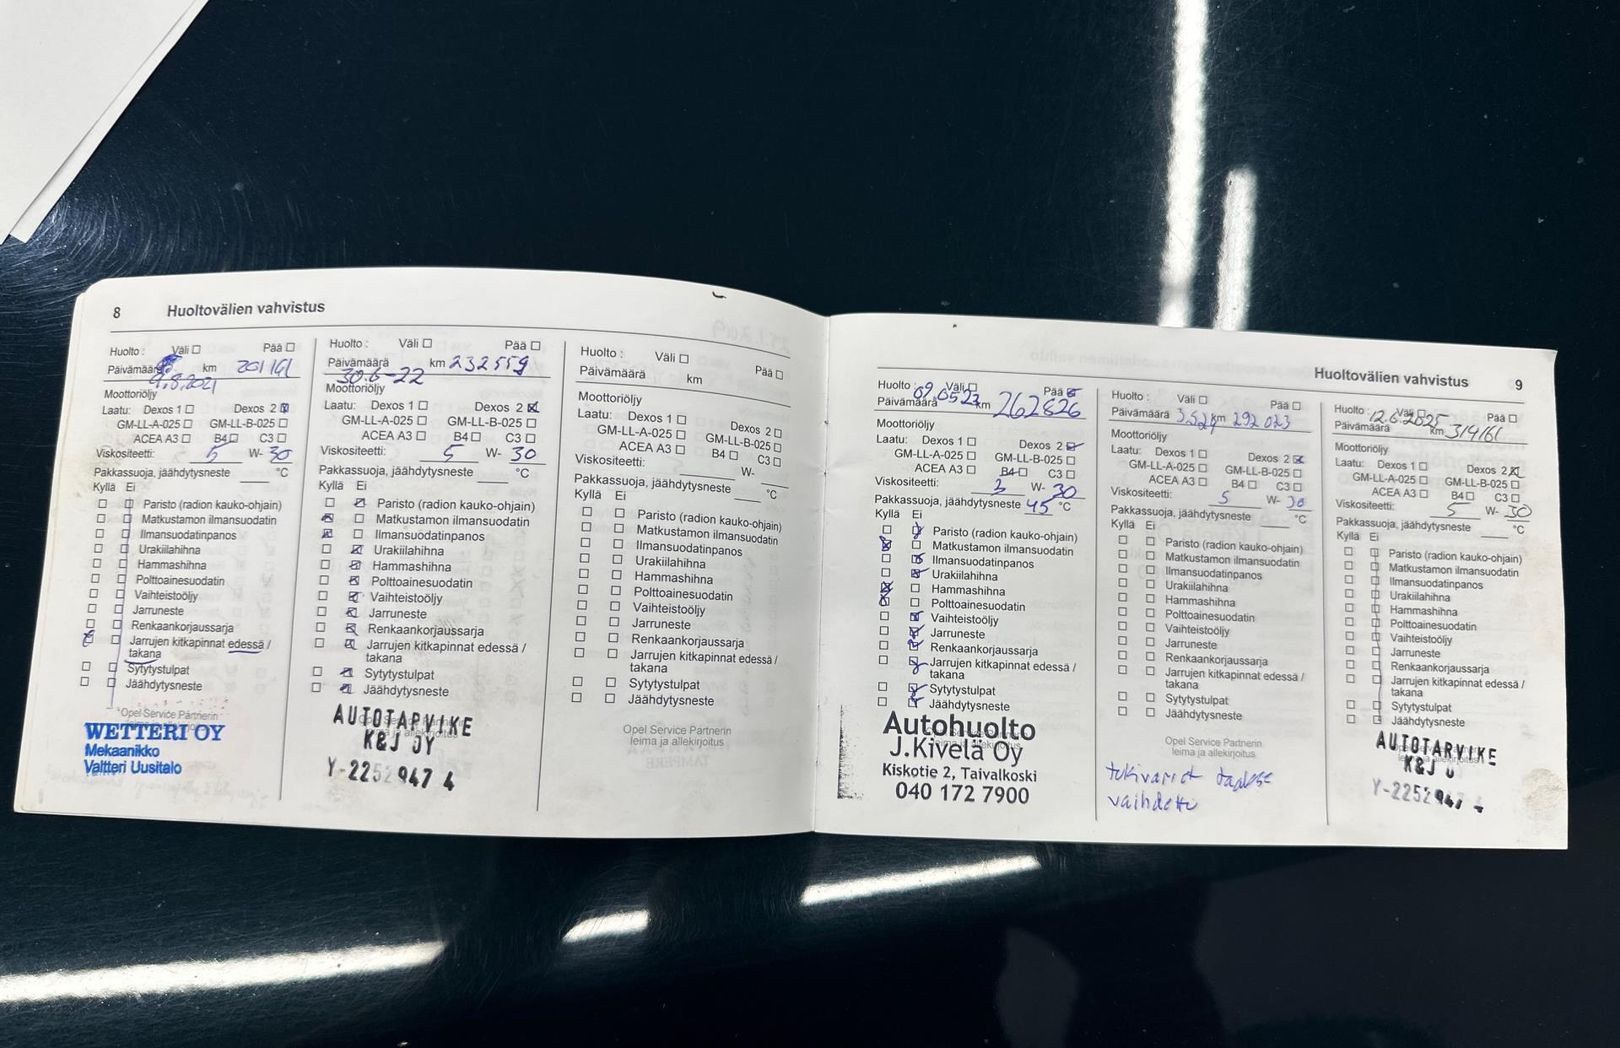 8 Huoltovälien vahvistus
Huolto : Väli Pää
Päivämäärä km 201161
9.8.2021
Moottoriöljy
Laatu: Dexos 1 Dexos 2
GM-LL-A-025 GM-LL-B-025
ACEA A3 B4 C3
Viskositeetti: 5 W- 30
Pakkassuoja, jäähdytysneste °C
Kyllä Ei
Paristo (radion kauko-ohjain)
Matkustamon ilmansuodatin
Ilmansuodatinpanos
Urakiilahihna
Hammashihna
Polttoainesuodatin
Vaihteistoöljy
Jarruneste
Renkaankorjaussarja
Jarrujen kitkapinnat edessä /
takana
Sytytystulpat
Jäähdytysneste
Opel Service Partnerin
WETTERI OY
Mekaanikko
Valtteri Uusitalo
Huolto : Väli Pää
Päivämäärä km 232559
30.6-22
Moottoriöljy
Laatu: Dexos 1 Dexos 2
GM-LL-A-025 GM-LL-B-025
ACEA A3 B4 C3
Viskositeetti: 5 W- 30
Pakkassuoja, jäähdytysneste °C
Kyllä Ei
Paristo (radion kauko-ohjain)
Matkustamon ilmansuodatin
Ilmansuodatinpanos
Urakiilahihna
Hammashihna
Polttoainesuodatin
Vaihteistoöljy
Jarruneste
Renkaankorjaussarja
Jarrujen kitkapinnat edessä /
takana
Sytytystulpat
Jäähdytysneste
AUTOTARVIKE
K&J OY
Y-2252 947 4
Huolto : Väli Pää
Päivämäärä km
Moottoriöljy
Laatu: Dexos 1 Dexos 2
GM-LL-A-025 GM-LL-B-025
ACEA A3 B4 C3
Viskositeetti: W-
Pakkassuoja, jäähdytysneste °C
Kyllä Ei
Paristo (radion kauko-ohjain)
Matkustamon ilmansuodatin
Ilmansuodatinpanos
Urakiilahihna
Hammashihna
Polttoainesuodatin
Vaihteistoöljy
Jarruneste
Renkaankorjaussarja
Jarrujen kitkapinnat edessä /
takana
Sytytystulpat
Jäähdytysneste
Opel Service Partnerin
leima ja allekirjoitus
Huoltovälien vahvistus 9
Huolto : Väli Pää
09.0523
Päivämäärä km 262826
Moottoriöljy
Laatu: Dexos 1 Dexos 2
GM-LL-A-025 GM-LL-B-025
ACEA A3 B4 C3
Viskositeetti: W- 30
Pakkassuoja, jäähdytysneste 45 °C
Kyllä Ei
Paristo (radion kauko-ohjain)
Matkustamon ilmansuodatin
Ilmansuodatinpanos
Urakiilahihna
Hammashihna
Polttoainesuodatin
Vaihteistoöljy
Jarruneste
Renkaankorjaussarja
Jarrujen kitkapinnat edessä /
takana
Sytytystulpat
Jäähdytysneste
Autohuolto
J.Kivelä Oy
Kiskotie 2, Taivalkoski
040 172 7900
Huolto : Väli Pää
Päivämäärä km 292 023
Moottoriöljy
Laatu: Dexos 1 Dexos 2
GM-LL-A-025 GM-LL-B-025
ACEA A3 B4 C3
Viskositeetti: 5 W- 30
Pakkassuoja, jäähdytysneste °C
Kyllä Ei
Paristo (radion kauko-ohjain)
Matkustamon ilmansuodatin
Ilmansuodatinpanos
Urakiilahihna
Hammashihna
Polttoainesuodatin
Vaihteistoöljy
Jarruneste
Renkaankorjaussarja
Jarrujen kitkapinnat edessä /
takana
Sytytystulpat
Jäähdytysneste
Opel Service Partnerin
leima ja allekirjoitus
tukivarret
vaihdettu
Huolto : Väli Pää
12.6.2025
Päivämäärä km 314161
Moottoriöljy
Laatu: Dexos 1 Dexos 2
GM-LL-A-025 GM-LL-B-025
ACEA A3 B4 C3
Viskositeetti: 5 W- 30
Pakkassuoja, jäähdytysneste °C
Kyllä Ei
Paristo (radion kauko-ohjain)
Matkustamon ilmansuodatin
Ilmansuodatinpanos
Urakiilahihna
Hammashihna
Polttoainesuodatin
Vaihteistoöljy
Jarruneste
Renkaankorjaussarja
Jarrujen kitkapinnat edessä /
takana
Sytytystulpat
Jäähdytysneste
AUTOTARVIKE
K&J
Y-2252 947 4